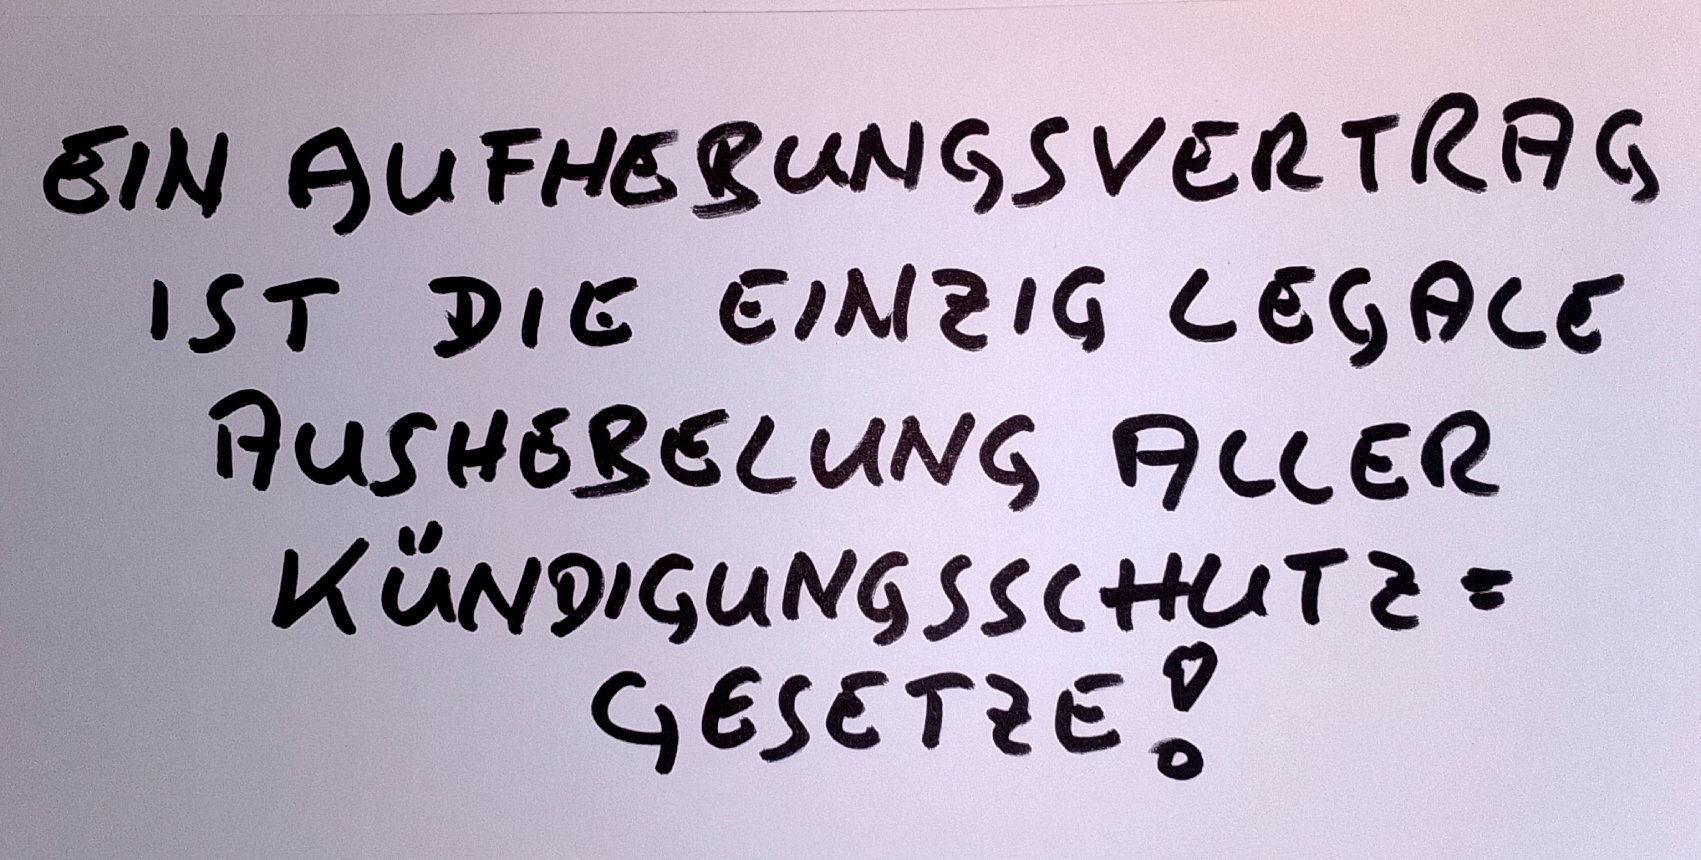 EIN AUFHEBUNGSVERTRAG
IST DIE EINZIG LEGALE
AUSHEBELUNG ALLER
KÜNDIGUNGSSCHUTZ=
GESETZE!